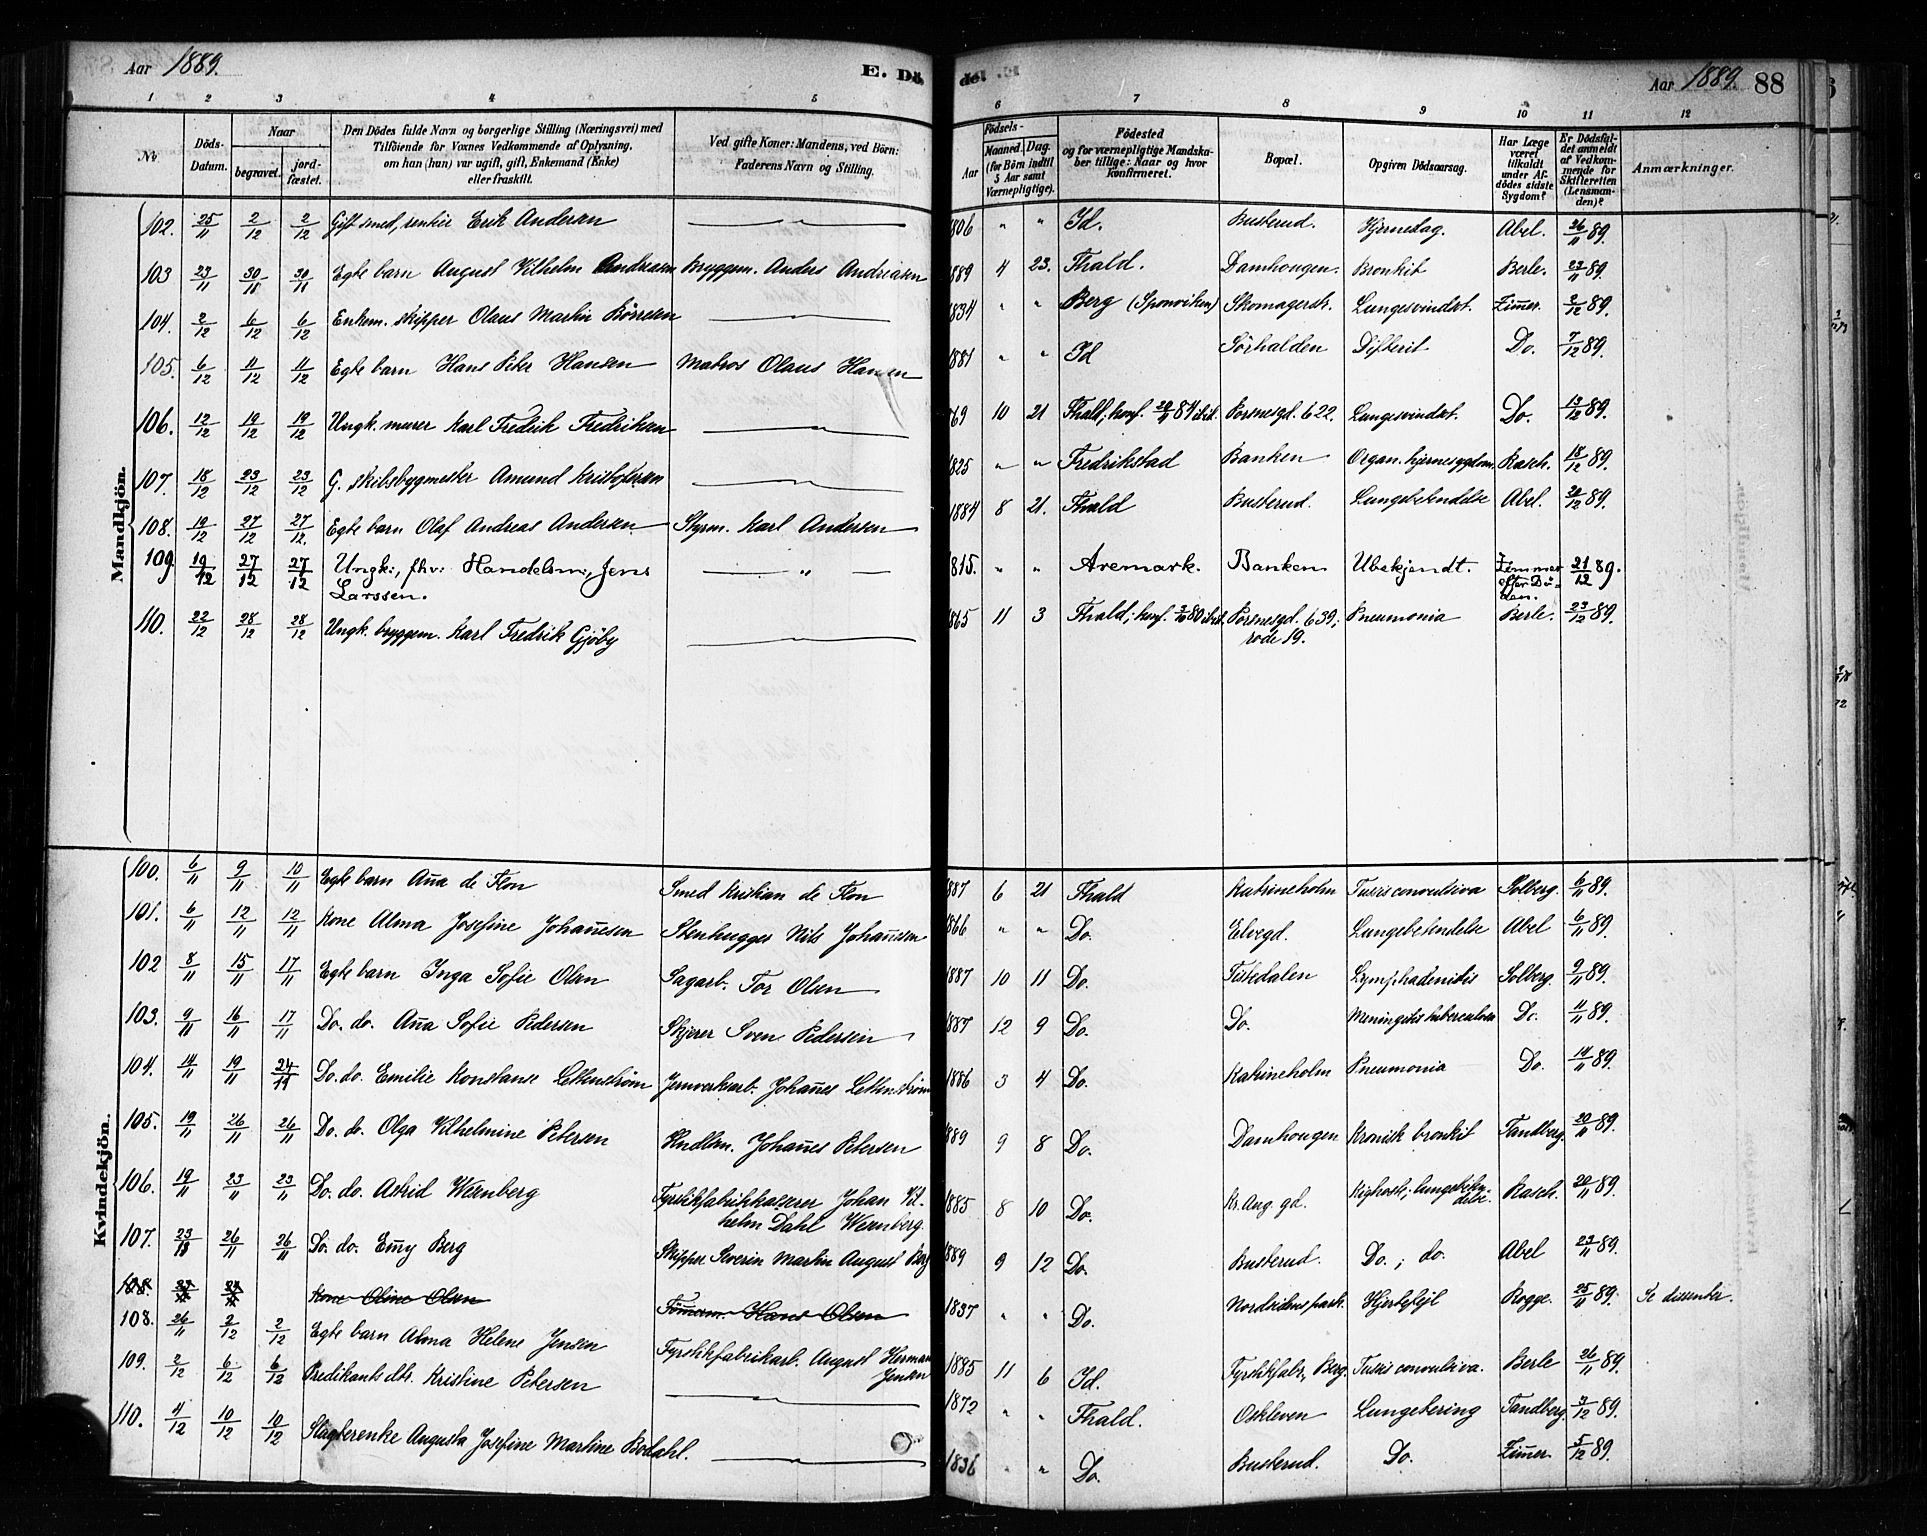 Aar 1889. E. Dö
del. Aar 1889. 88
1 2 3 4 5 6 7 8 9 10 11 12
No Döds-Datum. Naar begravet. jord-fæstet. Den Dödes fulde Navn og borgerlige Stilling (Næringsvei) med Tilföiende for Voxnes Vedkommende af Oplysning, om han (hun) var ugift, gift, Enkemand (Enke) eller fraskilt. Ved gifte Koner: Mandens, ved Börn: Faderens Navn og Stilling. Födsels- Aar Maaned. Dag. (for Börn indtil 5 Aar samt Værnepligtige). Födested og for værnepligtige Mandska-ber tillige: Naar og hvor konfirmeret. Bopæl. Opgiven Dödsaarsag. Har Læge været tilkaldt under Af-dödes sidste Sygdom? Er Dödsfal-det anmeldt af Vedkom-mende for Skifteretten (Lensman-den)? Anmærkninger.
Mandkjön.
102. 25/11 2/12 2/12 Gift smed, rentier Erik Andersen 1806 " " Id. Busterud. Hjerneslag. Abel. 26/11 89.
103 23/11 30/11 30/11 Egte barn August Vilhelm Andreasen Bryggem. Anders Andreasen 1889 4 23. Fhald. Damhougen. Bronkit Berle. 23/11 89.
104. 2/12 6/12 6/12 Enkem. skipper Olaus Martin Börresen 1834 " " Berg (Sponviken) Skomagerstr. Lungesvindsot. Zimer. 2/12 89.
105. 6/12 11/12 11/12 Egte barn Hans Peter Hansen Matros Olaus Hansen 1881 " " Id Sörhalden Difterit Do. 7/12 89.
106. 12/12 19/12 19/12 Ungk. murer Karl Fredrik Fredriksen 69 10 21 Fhald; konf. 84 ibid. Porsnesgd. 622. Lungesvindsot. Do. 13/12 89.
107. 18/12 23/12 23/12 G. skibsbygmester Amund Kristofersen 1825 " " Fredrikstad Banken Organ. hjernesygdom. Rasch. 18/12 89.
108. 19/12 27/12 27/12. Egte barn Olaf Andreas Andersen Styrm. Karl Andersen 1884 8 21. Fhald Busterud. Lungebetendelse Abel. 20/12 89.
109 19/12 27/12 27/12 Ungk:, fhv: Handelsm:, Jens Larssen. " 1815. " " Aremark. Banken Ubekjendt. Zimmer efter Dö-den. 21/12 89.
110. 22/12 28/12 28/12 Ungk. bryggem. Karl Fredrik Gjöby 1865 11 3 Fhald; konf. 80 ibid. Porsnesgd. 639; rode 19. Pneumonia Berle. 23/12 89.
Kvindekjön.
100. 6/11 9/11 10/11 Egte barn Anna de Flon Smed Kristian de Flon 1887 6 21 Fhald Katrineholm Tussis convulsiva Solberg. 6/11 89.
101. 6/11 12/11 12/11 Kone Alma Josefine Johannesen Stenhugger Nils Johannesen 1866 " " Do. Elvegd. Lungebetendelse Abel 6/11 89.
102 8/11 15/11 17/11 Egte barn Inga Sofie Olsen Sagarb. Tor Olsen 1887 10 11 Do. Tistedalen Lymfhadenitis Solberg. 9/11 89.
103. 9/11 16/11 17/11 Do. do. Anna Sofie Pedersen Skjerer Sven Pedersen 1887 12 9 Do. Do. Meningitis tuberculosa Do. 11/11 89.
104. 14/11 19/11 24/11 Do. do. Emilie Konstanse Lettenström Jernverksarb. Johannes Lettenström 1886 3 4 Do. Katrineholm Pneumonia Do. 14/11 89.
105. 19/11 26/11 26/11 Do. do. Olga Vilhelmine Petersen Hndlsm. Johannes Petersen 1889 9 8 Do. Damhougen Kronisk bronkit Tandberg. 20/11 89.
106. 19/11 23/11 23/11 Do. do. Astrid Wernberg Fyrstikfabrikkasserer Johan Vil-helm Dahl Wernberg. 1885 8 10 Do. Kr. Aug. gd. Kighoste; lungebeten-delse Rasch. 20/11 89.
107. 23/11 26/11 26/11 Do. do. Emy Berg Skipper Severin Martin August Berg 1889 9 12 Do. Busterud. Do.; do. Abel 23/11 89.
108. Kone Oline Olsen Tömerm. Hans Olsen 1837 " " Do. Nordridens park. Hjertefejl Rogge. 25/11 89. Se dissenter.
108. 26/11 2/12 2/12 Egte barn Alma Helene Jensen Fyrstikfabrikarb. August Herman Jensen 1885 11 6 Id. Fyrstikfabr. Berg. Tussis convulsiva. Berle 26/11 89.
109. 2/12 6/12 6/12 Predikants dtr. Kristine Petersen 1872 " " Fhald. Oskleven Lungetering Tandberg. 3/12 89.
110. 4/12 10/12 10/12 Slagterenke Augusta Josefine Martine Bodahl. 1836 " " Do. Busterud. Do. Zimer. 5/12 89.